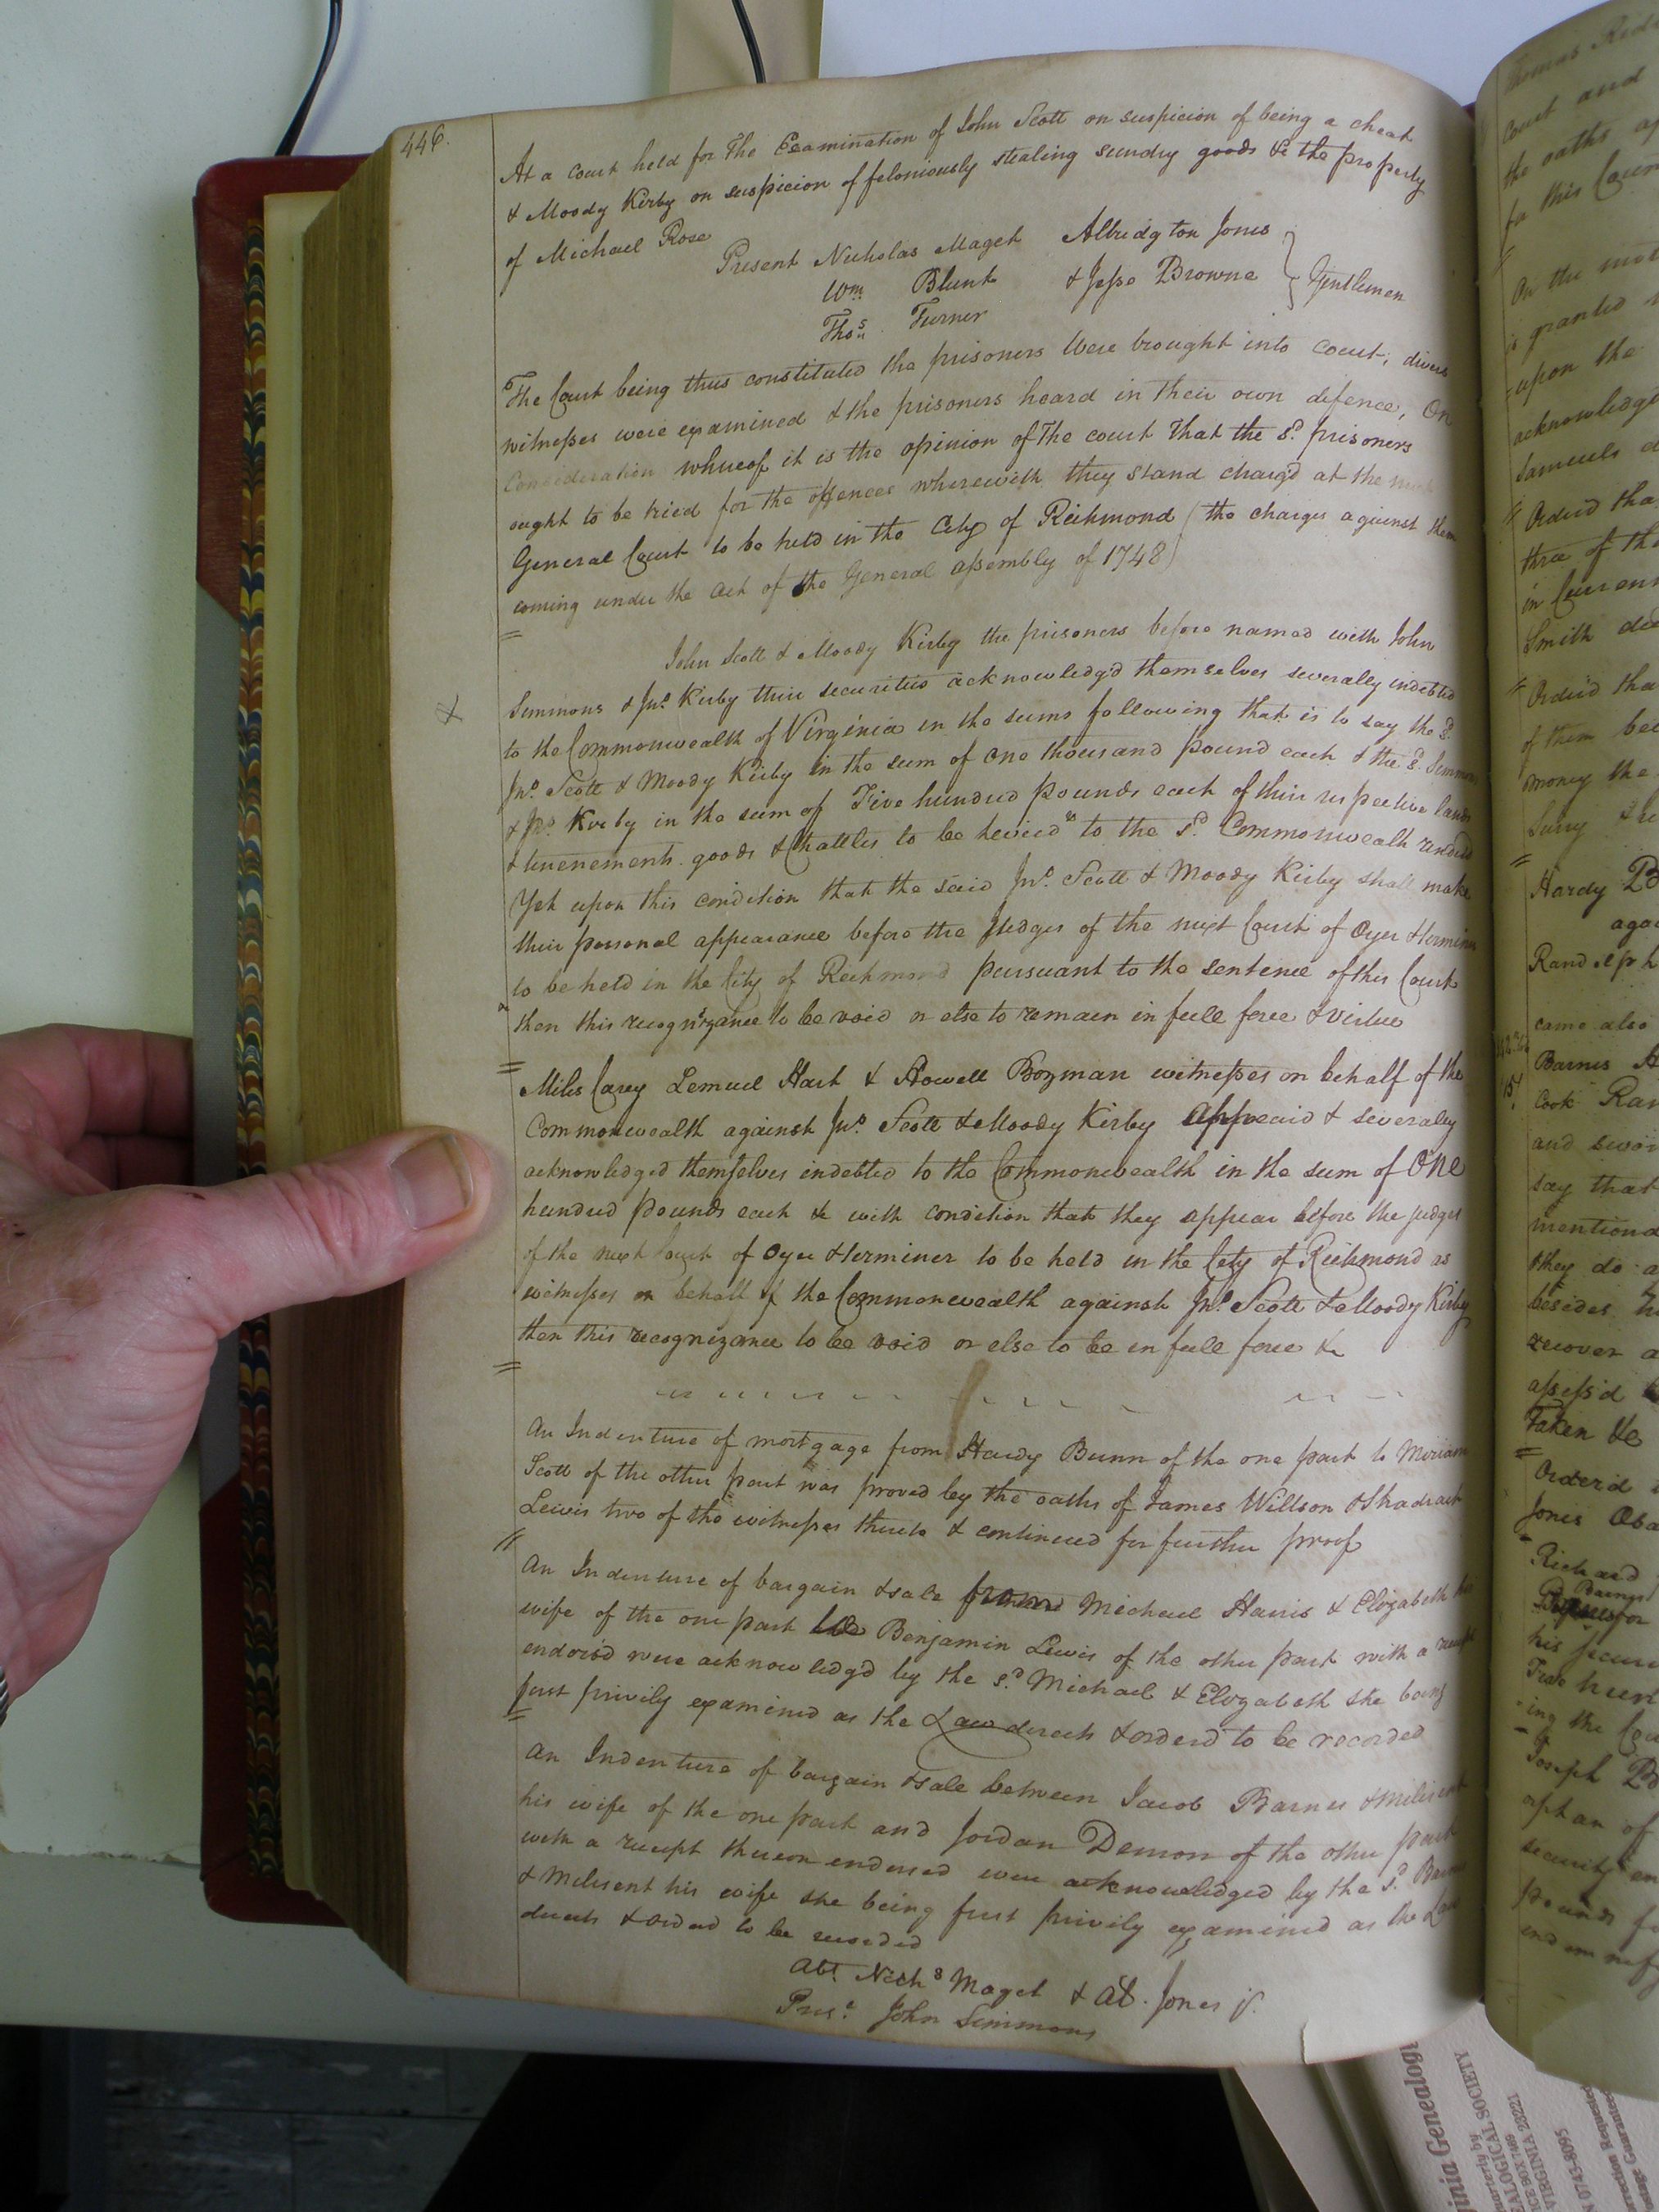 446.
At a Court held for The Examination of John Scott on suspicion of being a cheat
& Moody Kirby on suspicion of feloniously stealing sundry goods &c the property
of Michael Rose
Present Nicholas Maget Albridgton Jones
Wm. Blunt & Jesse Browne } Gentlemen
Thos. Turner
The Court being thus constituted the prisoners Were brought into Court, divers
witnesses were examined & the prisoners heard in their own defence, On
Consideration whereof it is the opinion of The court That the sd. prisoners
ought to be tried for the offences wherewith they stand charg'd at the next
General Court to be held in the City of Richmond (the charges against them
coming under the act of the General assembly of 1748)
John Scott & Moody Kirby the prisoners before named with John
Simmons & Jno. Kirby their securities acknowledg'd themselves severally indebted
to the Commonwealth of Virginia in the sums following that is to say the sd.
Jno. Scott & Moody Kirby in the sum of One thousand pound each & the sd. Simmons
& Jno. Kirby in the sum of Five hundred pounds each of their respective lands
& tenements goods & Chattles to be levied & to the sd. Commonwealth rendred
Yet upon this condition that the said Jno. Scott & Moody Kirby shall make
their personal appearance before the Judges of the next Court of Oyer & terminer
to be held in the City of Richmond pursuant to the sentence of this Court
then this recognizance to be void or else to remain in full force & virtue
Miles Cary Lemuel Hart & Howell Bozman witnesses on behalf of the
Commonwealth against Jno. Scott & Moody Kirby appeard & severally
acknowledged themselves indebted to the Commonwealth in the sum of One
hundred pounds each &c with condition that they appear before the judges
of the next Court of Oyer & terminer to be held in the City of Richmond as
witnesses on behalf of the Commonwealth against Jno. Scott & Moody Kirby
then this recognizance to be void or else to be in full force &c
An Indenture of mortgage from Hardy Bunn of the one part to Miriam
Scott of the other part was proved by the oaths of James Willson & Shadrach
Lewis two of the witnesses thereto & continued for further proof
An Indenture of bargain & sale from Michael Harris & Elizabeth his
wife of the one part to Benjamin Lewis of the other part with a receipt
endors'd were acknowledg'd by the sd. Michael & Elizabeth she being
first privily examined as the Law directs & orderd to be recorded
An Indenture of bargain & sale between Jacob Barnes & Milisent
his wife of the one part and Jordan Demon of the other part
with a receipt thereon endorsed were acknowledged by the sd. Barnes
& Milisent his wife she being first privily examined as the Law
directs & orderd to be recorded
Abt. Nichs Maget & Al. Jones jr.
Prest. John Simmons
Court and
the oaths
for this Coun
On the mot
is granted
upon the
acknowledge
Samuels
Orderd tha
three of the
in Curren
Smith
Orderd tha
of them
money the
Surry
Hardy
aga
Randolph
came also
Barnes
Cook Ran
and swor
say that
mentiond
they do a
besides h
recover a
assess'd
Taken &c
Orderd
Jones Oba
Richard
Barnes
his secur
Two hun
ing the Cou
Joseph
orphan of
security
pounds fo
inia Genealogi
uarterly by
EALOGICAL SOCIETY
ICE BOX 7469
VIRGINIA 23221
N 0743-8095
rrection Requested
ostage Guaranteed